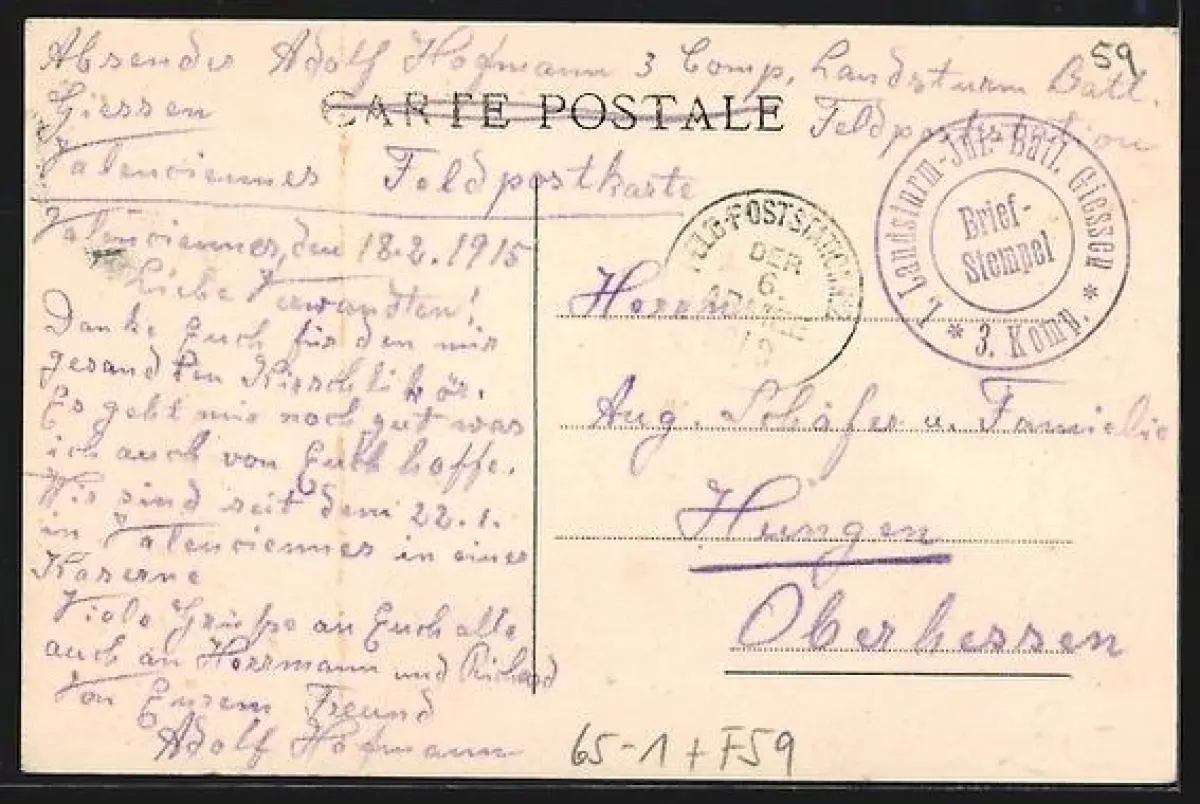 59
Absender Adolf Hofmann 3 Comp, Landsturm Batl.
Giessen
CARTE POSTALE
Feldpoststation
Valenciennes Feldpostkarte
Valenciennes, den 18.2. 1915
Liebe Verwandten!
Danke Euch für den mir
gesandten Kirschlikör.
Es geht mir noch gut was
ich auch von Euch hoffe.
Wir sind seit dem 22.1.
in Valenciennes in einer
Kaserne
Viele Grüße an Euch alle
auch an Herrmann und Richard
Von Eurem Freund
Adolf Hofmann
FELD-POSTSTATION
DER
6
1. Landsturm-Inf.-Batl. Giessen * 3. Komp. *
Brief-
Stempel
Herrn
Aug. Schäfer u. Familie
Hungen
Oberhessen
65-1+F59